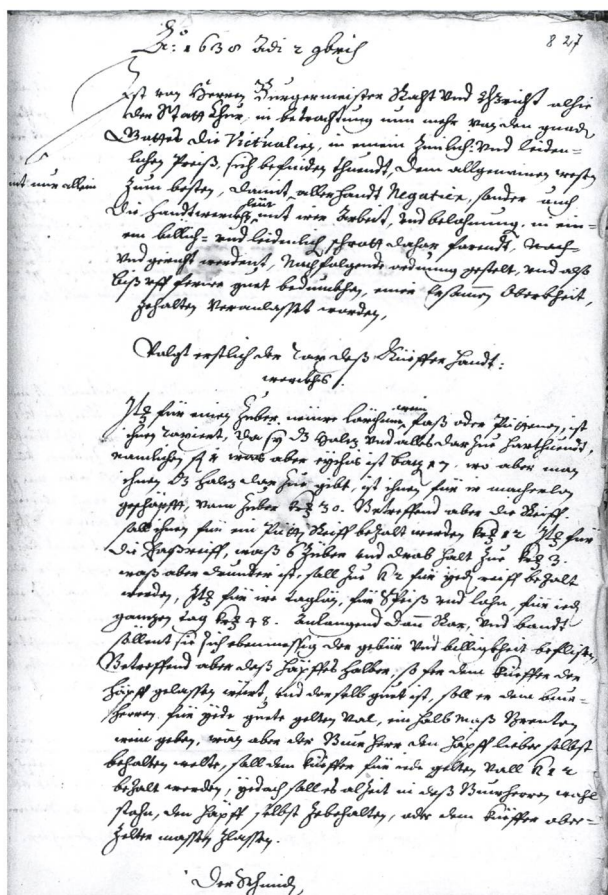 Aº: 1638 Adi 2 9brich
827
Ist von Herren Burgermeister Raht und Gericht alhie
der Statt Chur, in betrachtung nun mehr von den gnaden
Gottes die Victualien, in einem zimlich: und leiden=
lichen Preiß, sich befinden thuendt, dem allgemeinen wesen
nit nur allein
zum besten, damit allerhandt Negotien, sonder auch
leüt
die Handtwerckhs mit irer Arbeit, und belohnung, in ein=
em billich= und leidenlich schrott dahar farendt,
und gericht werdent, Nachfolgende ordnung gestelt, und alß
biß uff ferner guet bedunckhen, einer Ersamen Oberkheit,
zehalten veranlasset worden,
Volgt erstlich der Tax deß Küeffer Handt:
werckhs.
wein
Itz für einen Zuber lärchene faß oder ist
ihnen taxiert, da sy dz Holz und alles darzue
namlichen was aber eychis ist batzen wo aber man
ihnen dz Holz dar zue gibt, ist ihnen für ir macherlon
geschöpfft, vom Zuber krz 30. Betreffend aber die Reiff,
soll ihnen für ein Reiff bezalt werden krz 12 Itz für
die faßreiff, waß 6 Zuber und drob halt zue krz 3.
waß aber drunder ist, soll zue k 2 für yeds reiff bezalt
werden, Itz für ire taglön, für Speiß und lohn, für ieden
gantzen tag krz 48. Anlangend dann und bandt
sollent sie sich ebenmessig der gebür und billigkheit befleissen,
Betreffend aber daß häpffes halber, so fer dem Küeffer der
häpff gelassen wirt, und derselb guet ist, soll er dem bauw=
herren für yede guete gelten vol, ein halb maß Brenten
wein geben, wan aber der Buwherr den häpff lieber selbst
behalten welte, soll dem Küeffer für iede gelten voll k 12
bezalt werden, yedoch soll es alzeit in deß Buwherren wahl
stahn, den häpff selbst zebehalten, oder dem Küeffer ober=
zelter massen zlassen.
Der Schmid,